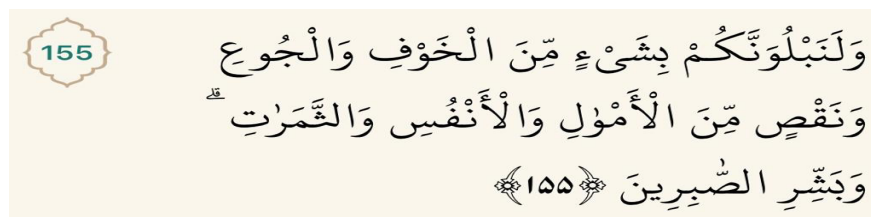 155
وَلَنَبْلُوَنَّكُمْ بِشَىْءٍ مِّنَ الْخَوْفِ وَالْجُوعِ
وَنَقْصٍ مِّنَ الْأَمْوٰلِ وَالْأَنْفُسِ وَالثَّمَرٰتِ ۗ
وَبَشِّرِ الصّٰبِرِينَ ﴿١٥٥﴾